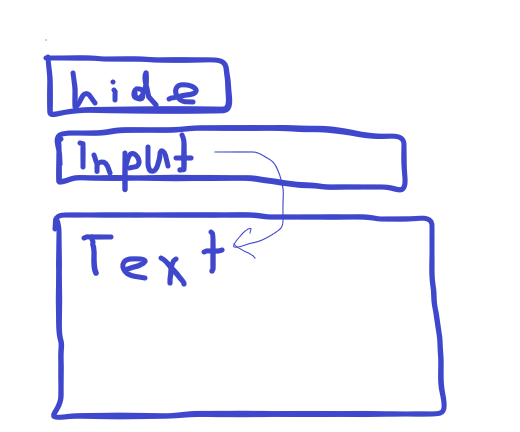 hide
Input
Text